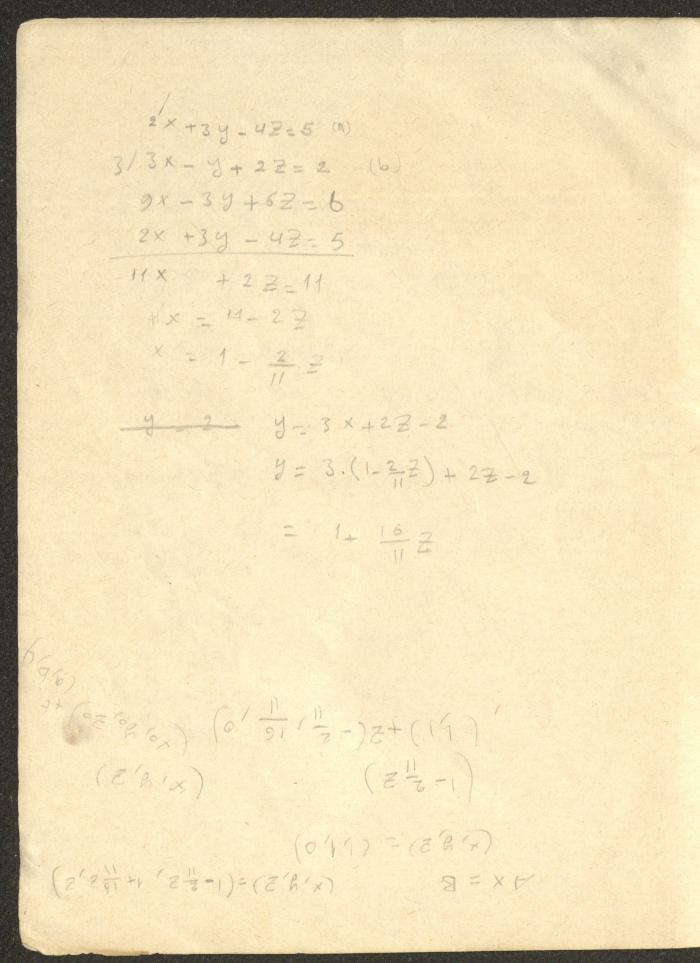 2x + 3y - 4z = 5 (a)
3/ 3x - y + 2z = 2 (b)
9x - 3y + 6z = 6
2x + 3y - 4z = 5
11x + 2z = 11
11x = 11 - 2z
x = 1 - 2/11 z
y = 2
y = 3x + 2z - 2
y = 3·(1 - 2/11 z) + 2z - 2
= 1 + 16/11 z
Ax = B
(x, y, z) = (1 - 2/11 z, 1 + 16/11 z, z)
(x, y, z) = (1, 1, 0)
(1 - 2/11 z)
(x, y, z)
(1, 1) + z(-2/11, 16/11, 0)
(x₀, y₀, z₀) + t